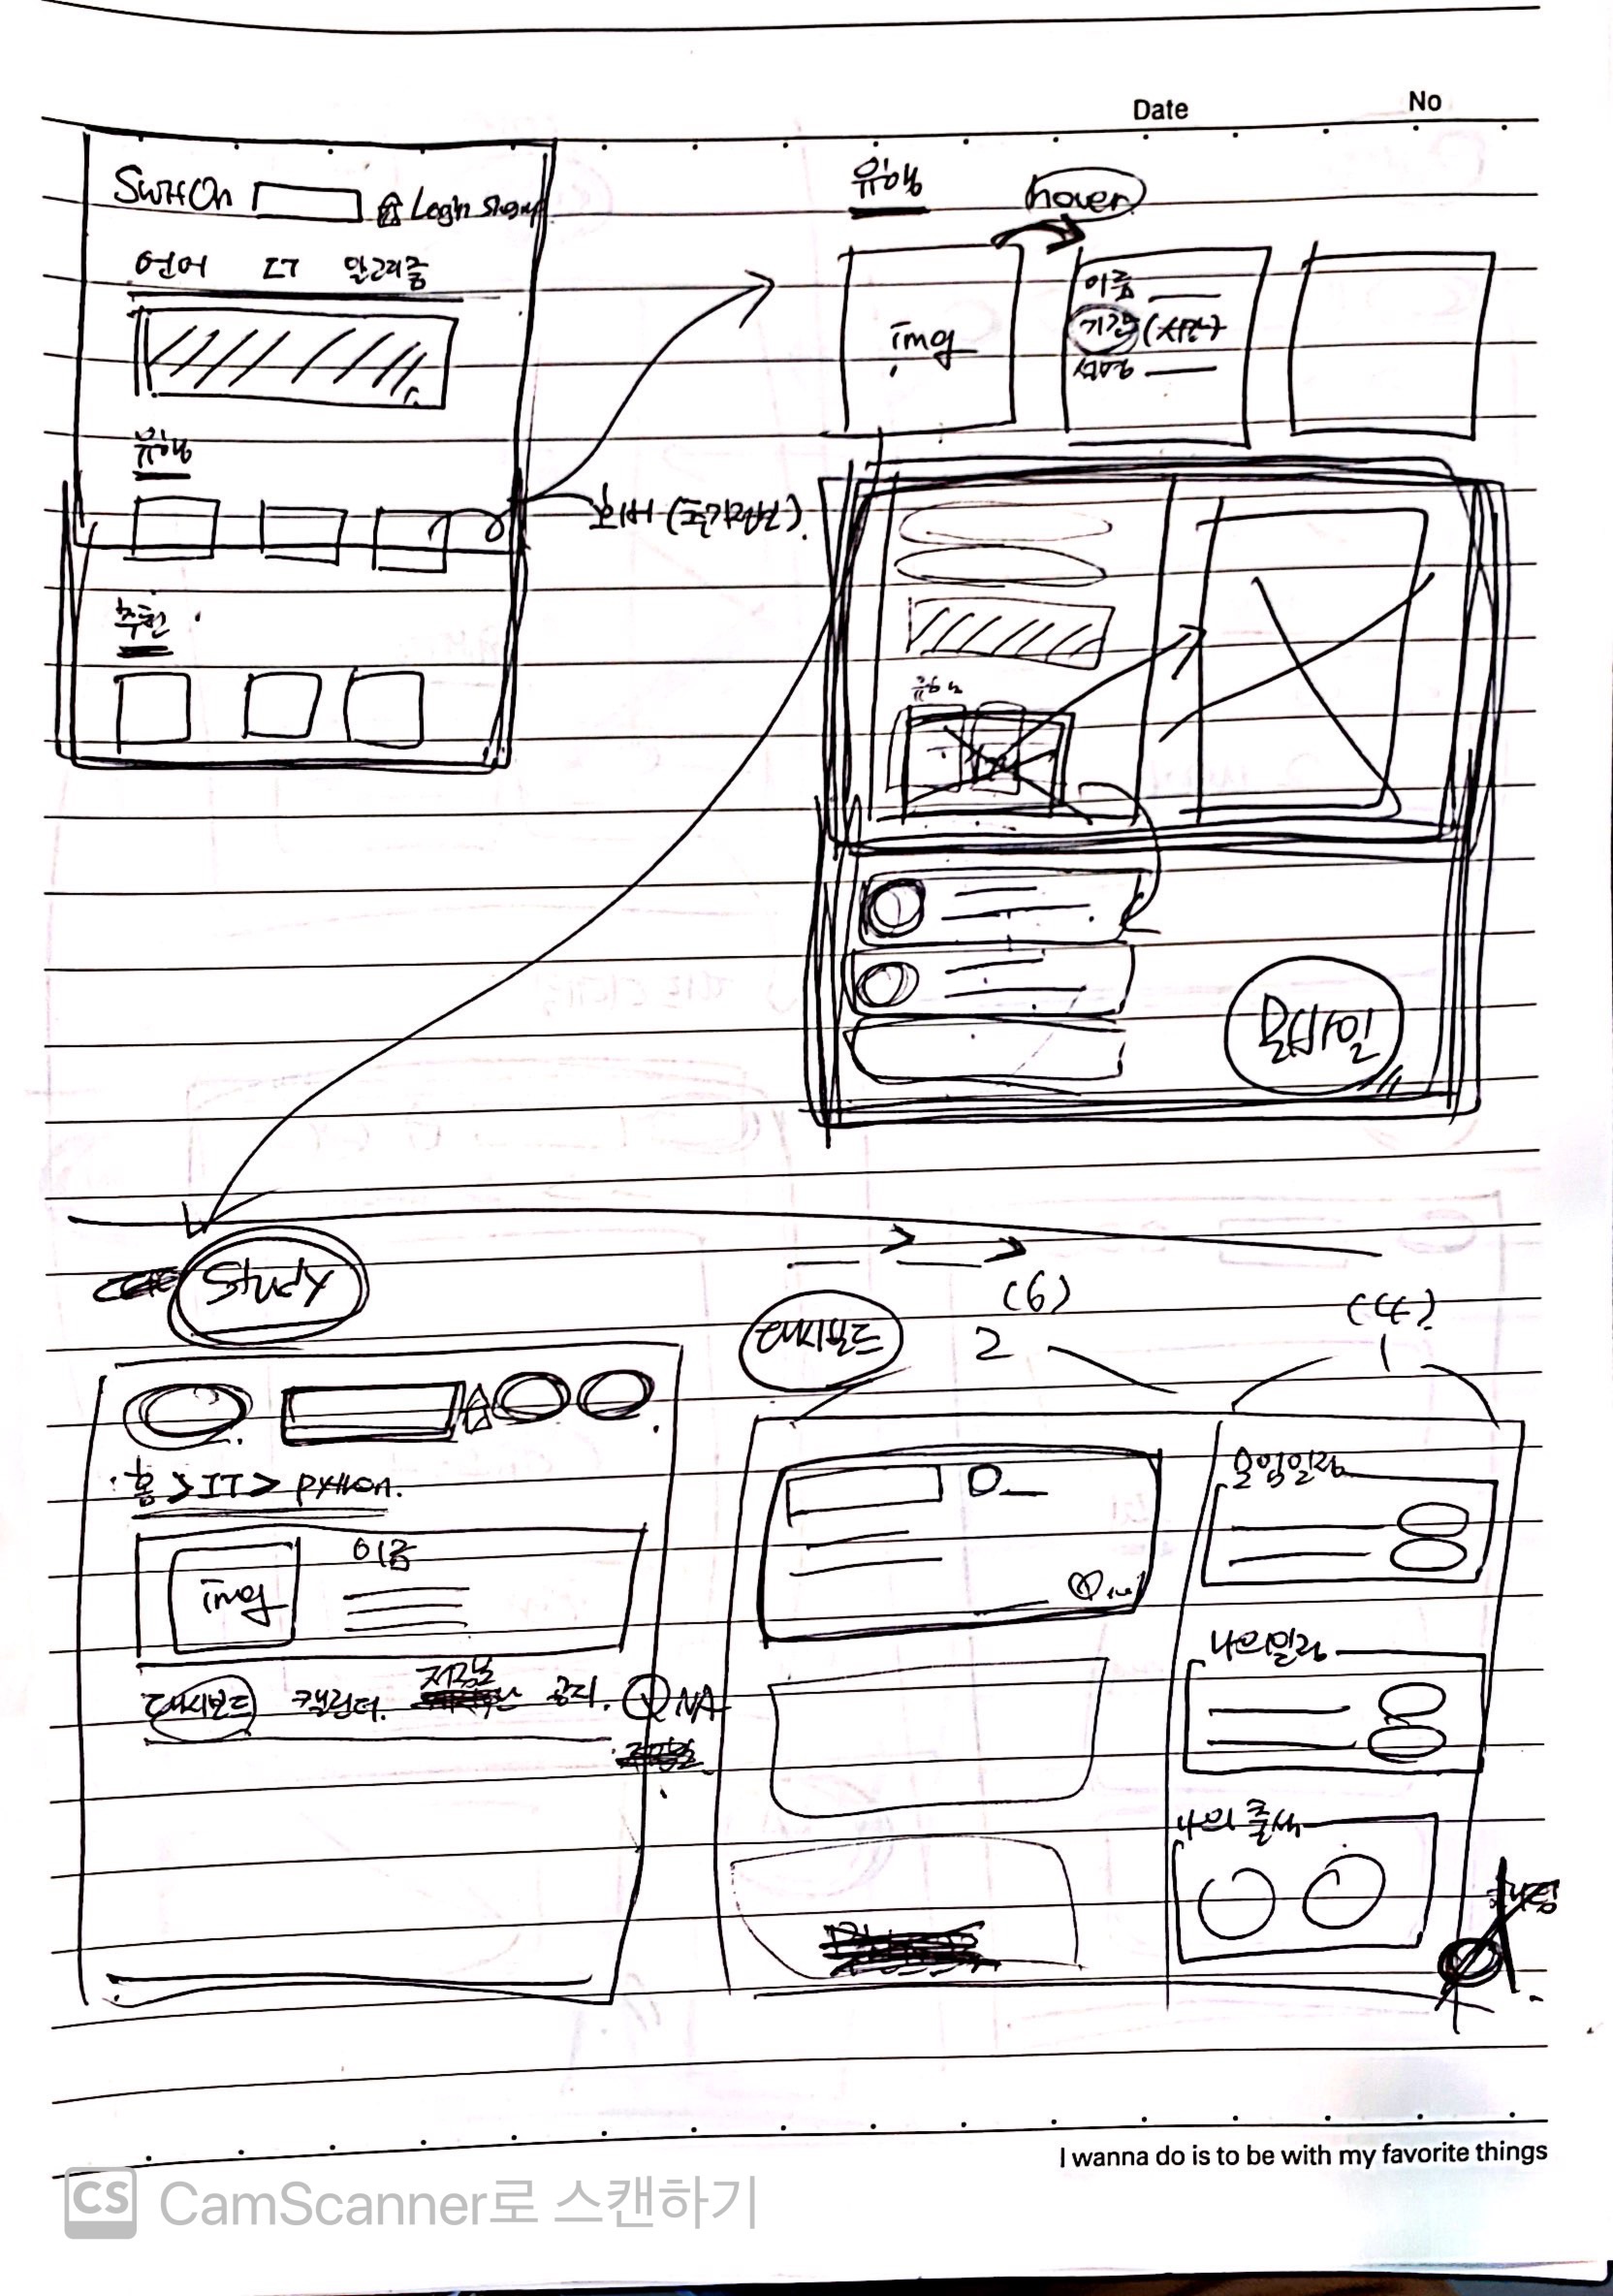 Date No
SwitCh Login
언어 IT 알고리즘
유형
추천
유형 hover
img
이름
기간 (시간)
설명
호버 (추가정보).
유형
모바일
Study
홈 > IT > python.
img 이름
대시보드 캘린더. 공지. QNA
대시보드 (6) (4)
2 1
모임일정
나의일정
나의 출석
I wanna do is to be with my favorite things
CS CamScanner로 스캔하기